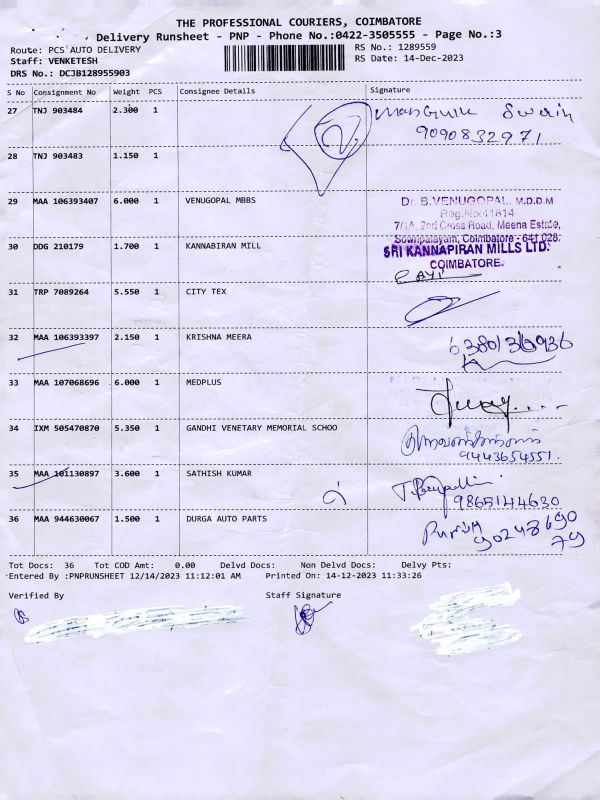 THE PROFESSIONAL COURIERS, COIMBATORE
Delivery Runsheet - PNP - Phone No.:0422-3505555 - Page No.:3
Route: PCS AUTO DELIVERY
RS No.: 1289559
Staff: VENKETESH
RS Date: 14-Dec-2023
DRS No.: DCJB128955903
S No Consignment No Weight PCS Consignee Details Signature
27 TNJ 903484 2.300 1
9090832971
28 TNJ 903483 1.150 1
29 MAA 106393407 6.000 1 VENUGOPAL MBBS
Dr. B.VENUGOPAL, M.D.D.M
Reg.No:41614
7/1A, 2nd Cross Road, Meena Estate,
Sowripalayam, Coimbatore - 641 028.
30 DDG 210179 1.700 1 KANNABIRAN MILL
SRI KANNAPIRAN MILLS LTD.
COIMBATORE.
31 TRP 7089264 5.550 1 CITY TEX
32 MAA 106393397 2.150 1 KRISHNA MEERA
33 MAA 107068696 6.000 1 MEDPLUS
34 IXM 505470870 5.350 1 GANDHI VENETARY MEMORIAL SCHOO
9443654551.
35 MAA 101130897 3.600 1 SATHISH KUMAR
9865144630
36 MAA 944630067 1.500 1 DURGA AUTO PARTS
90248690
79
Tot Docs: 36 Tot COD Amt: 0.00 Delvd Docs: Non Delvd Docs: Delvy Pts:
Entered By :PNPRUNSHEET 12/14/2023 11:12:01 AM Printed On: 14-12-2023 11:33:26
Verified By Staff Signature